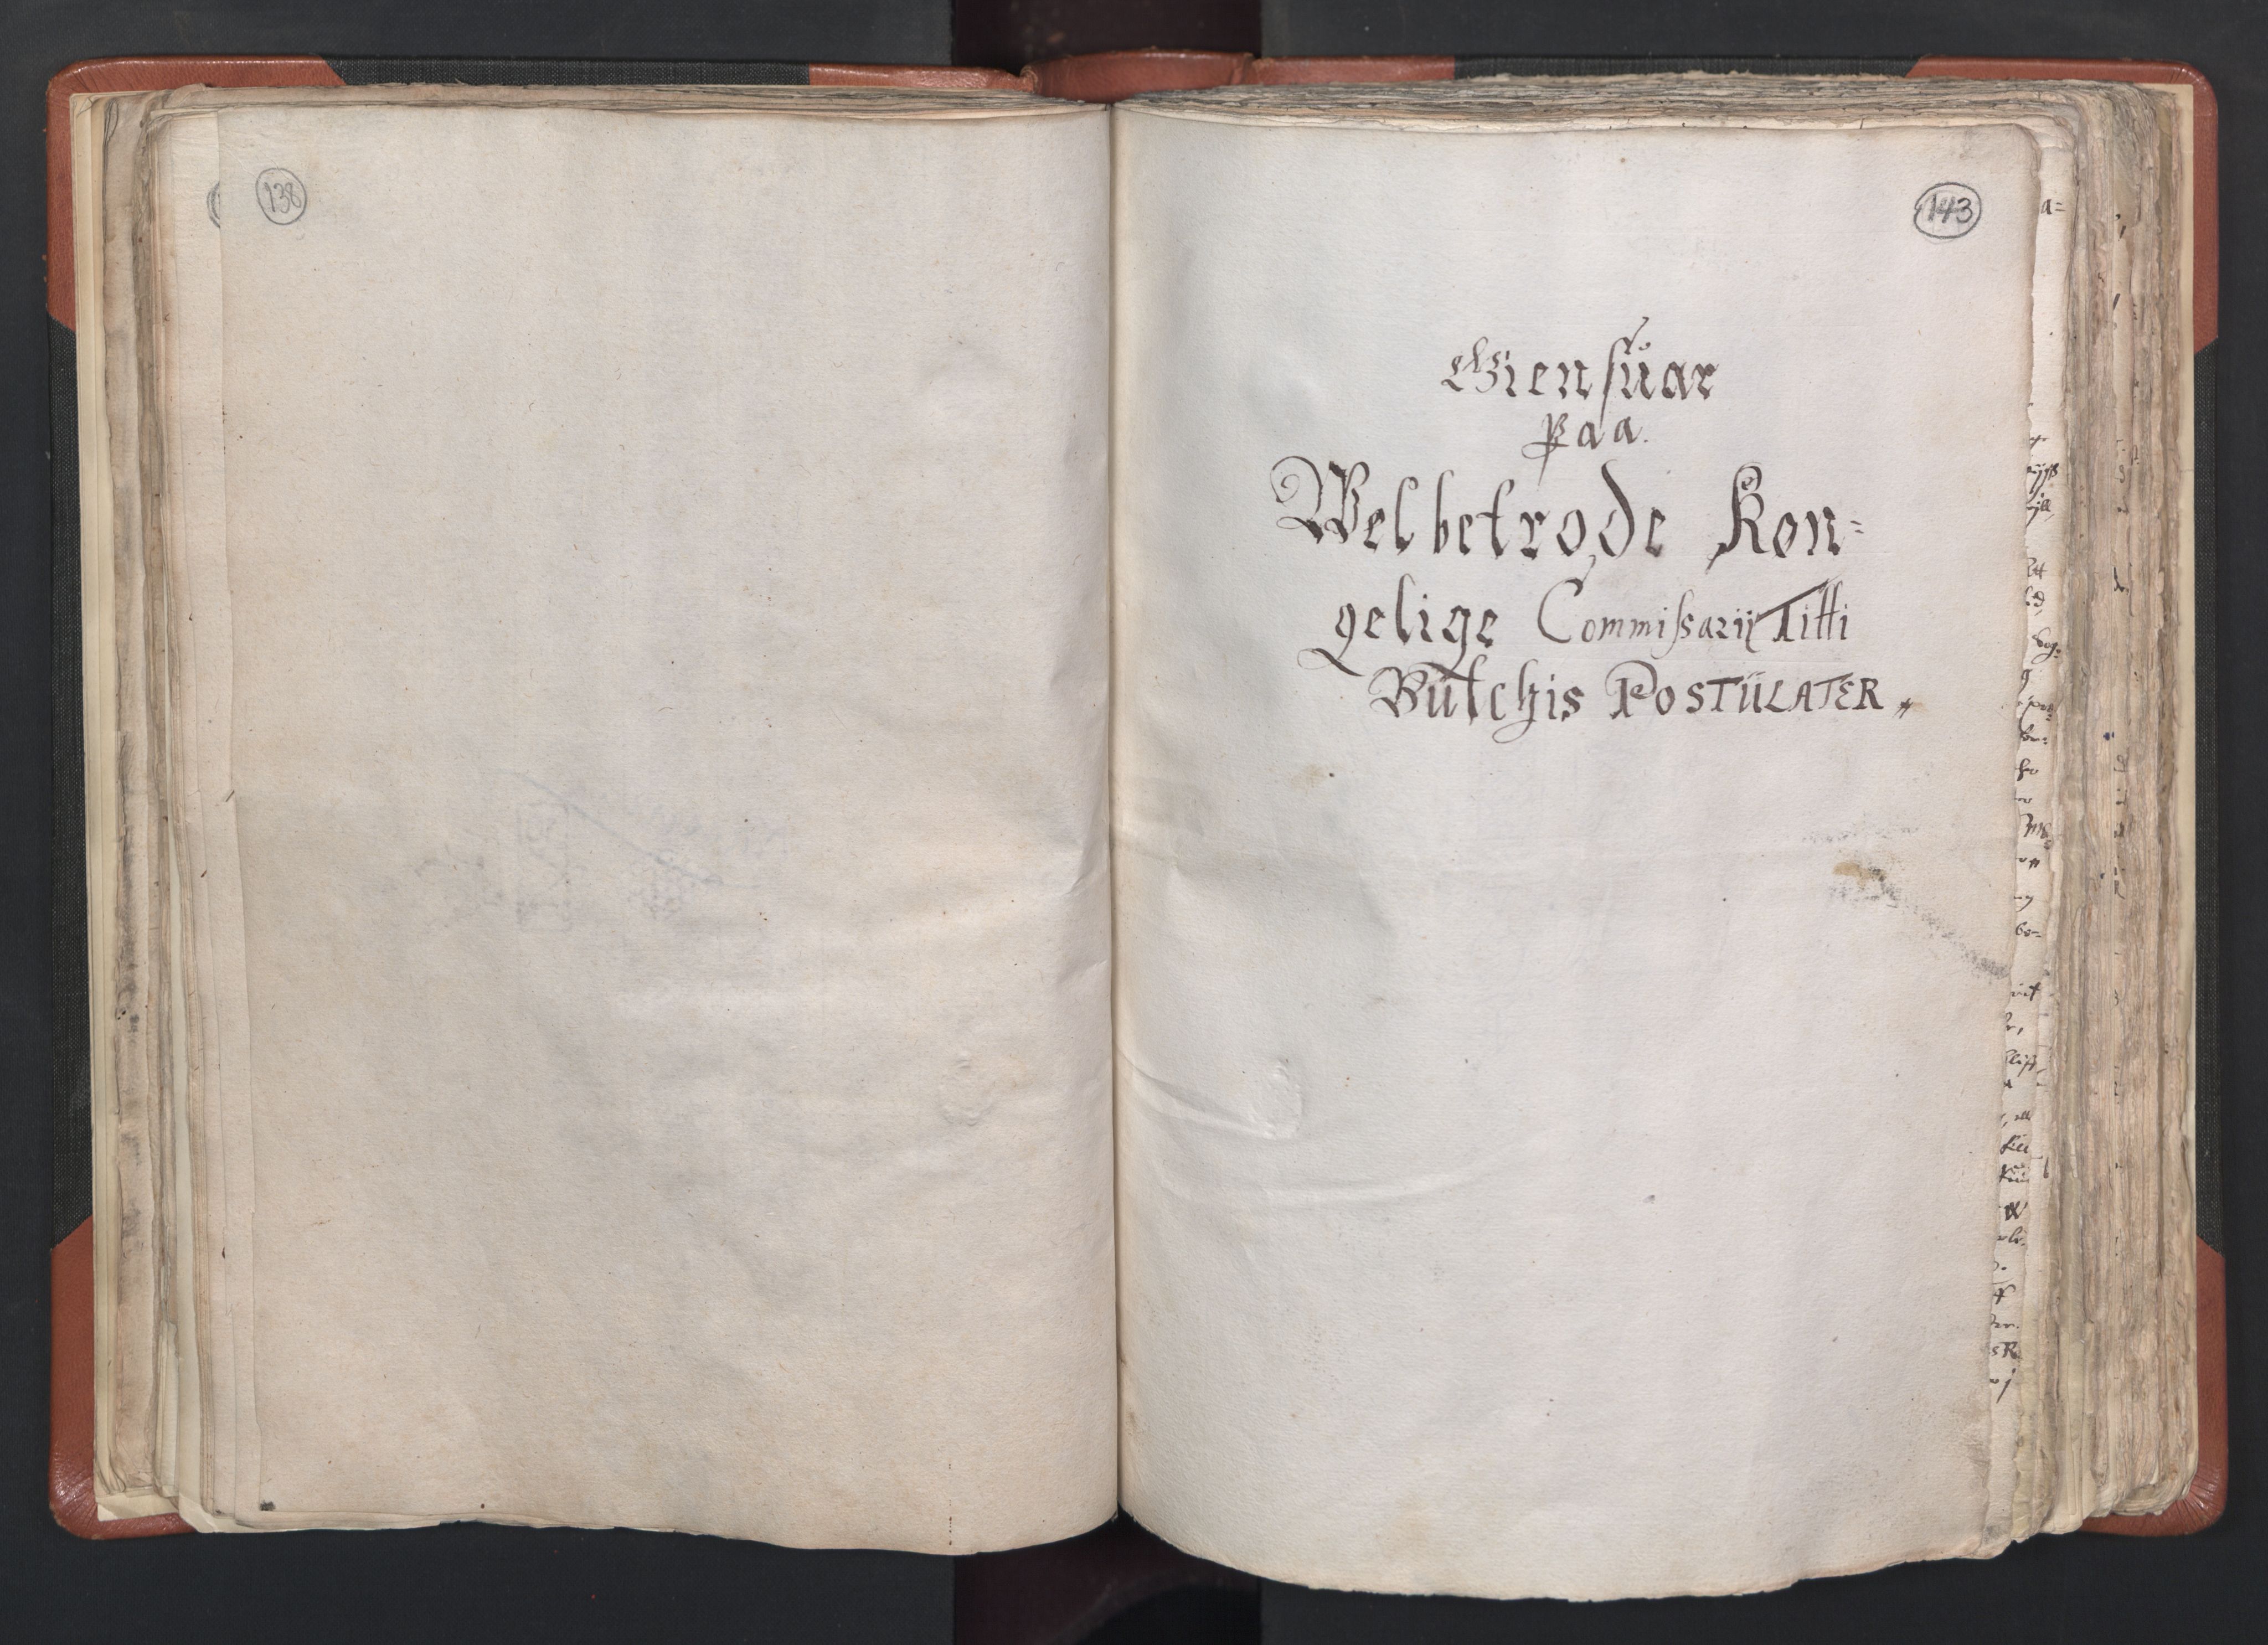 138
143
Giensuar
Paa.
Welbetrode Kon=
gelige Commissarij Titti
Butchis POSTULATER